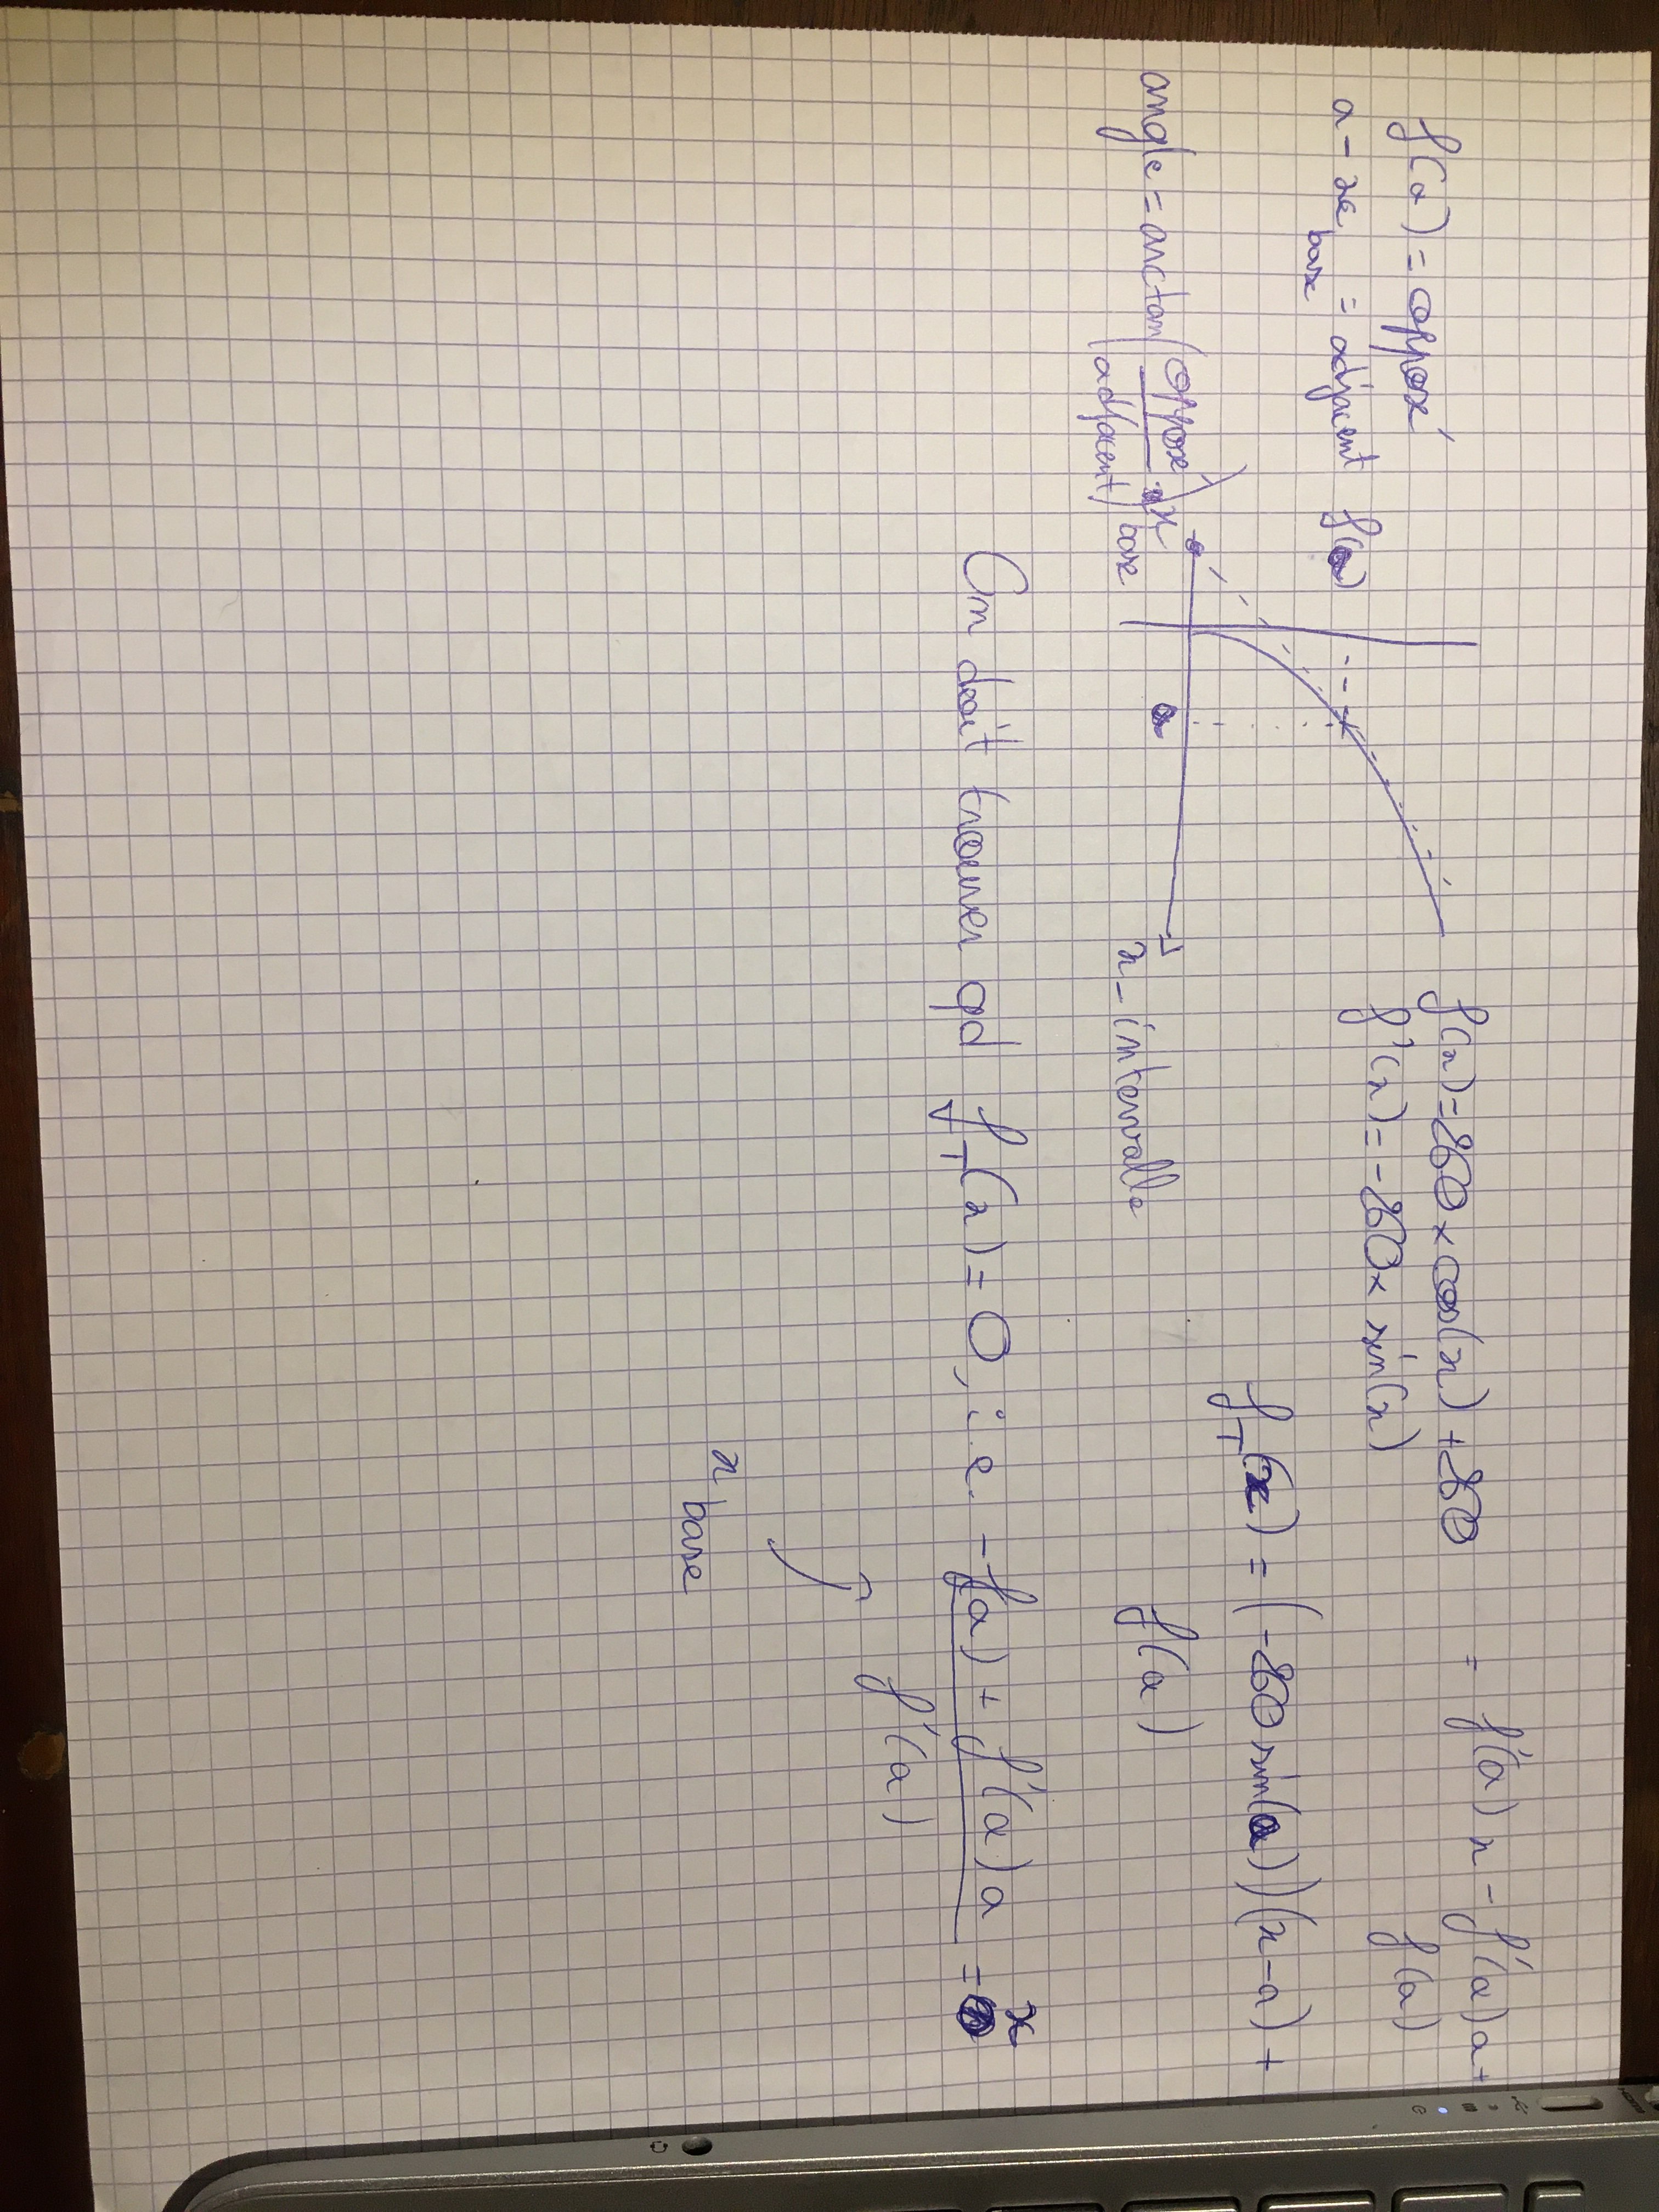 f(a) = opposé
a - x base = adjacent
f(a)
angle = arctan(opposé / adjacent)
x base
a
x - intervalle
f(x) = 250 × cos(x) + 250
f'(x) = -250 × sin(x)
= f'(a) x - f'(a) a +
f(a)
f_T(x) = (-250 sin(a))(x - a) +
f(a)
On doit trouver qd f_T(x) = 0, i.e. (-f(a) + f'(a) a) / f'(a) = x
x base